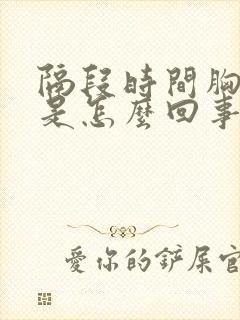 隔段時間胸
是怎麼回事
愛你的鏟屎官